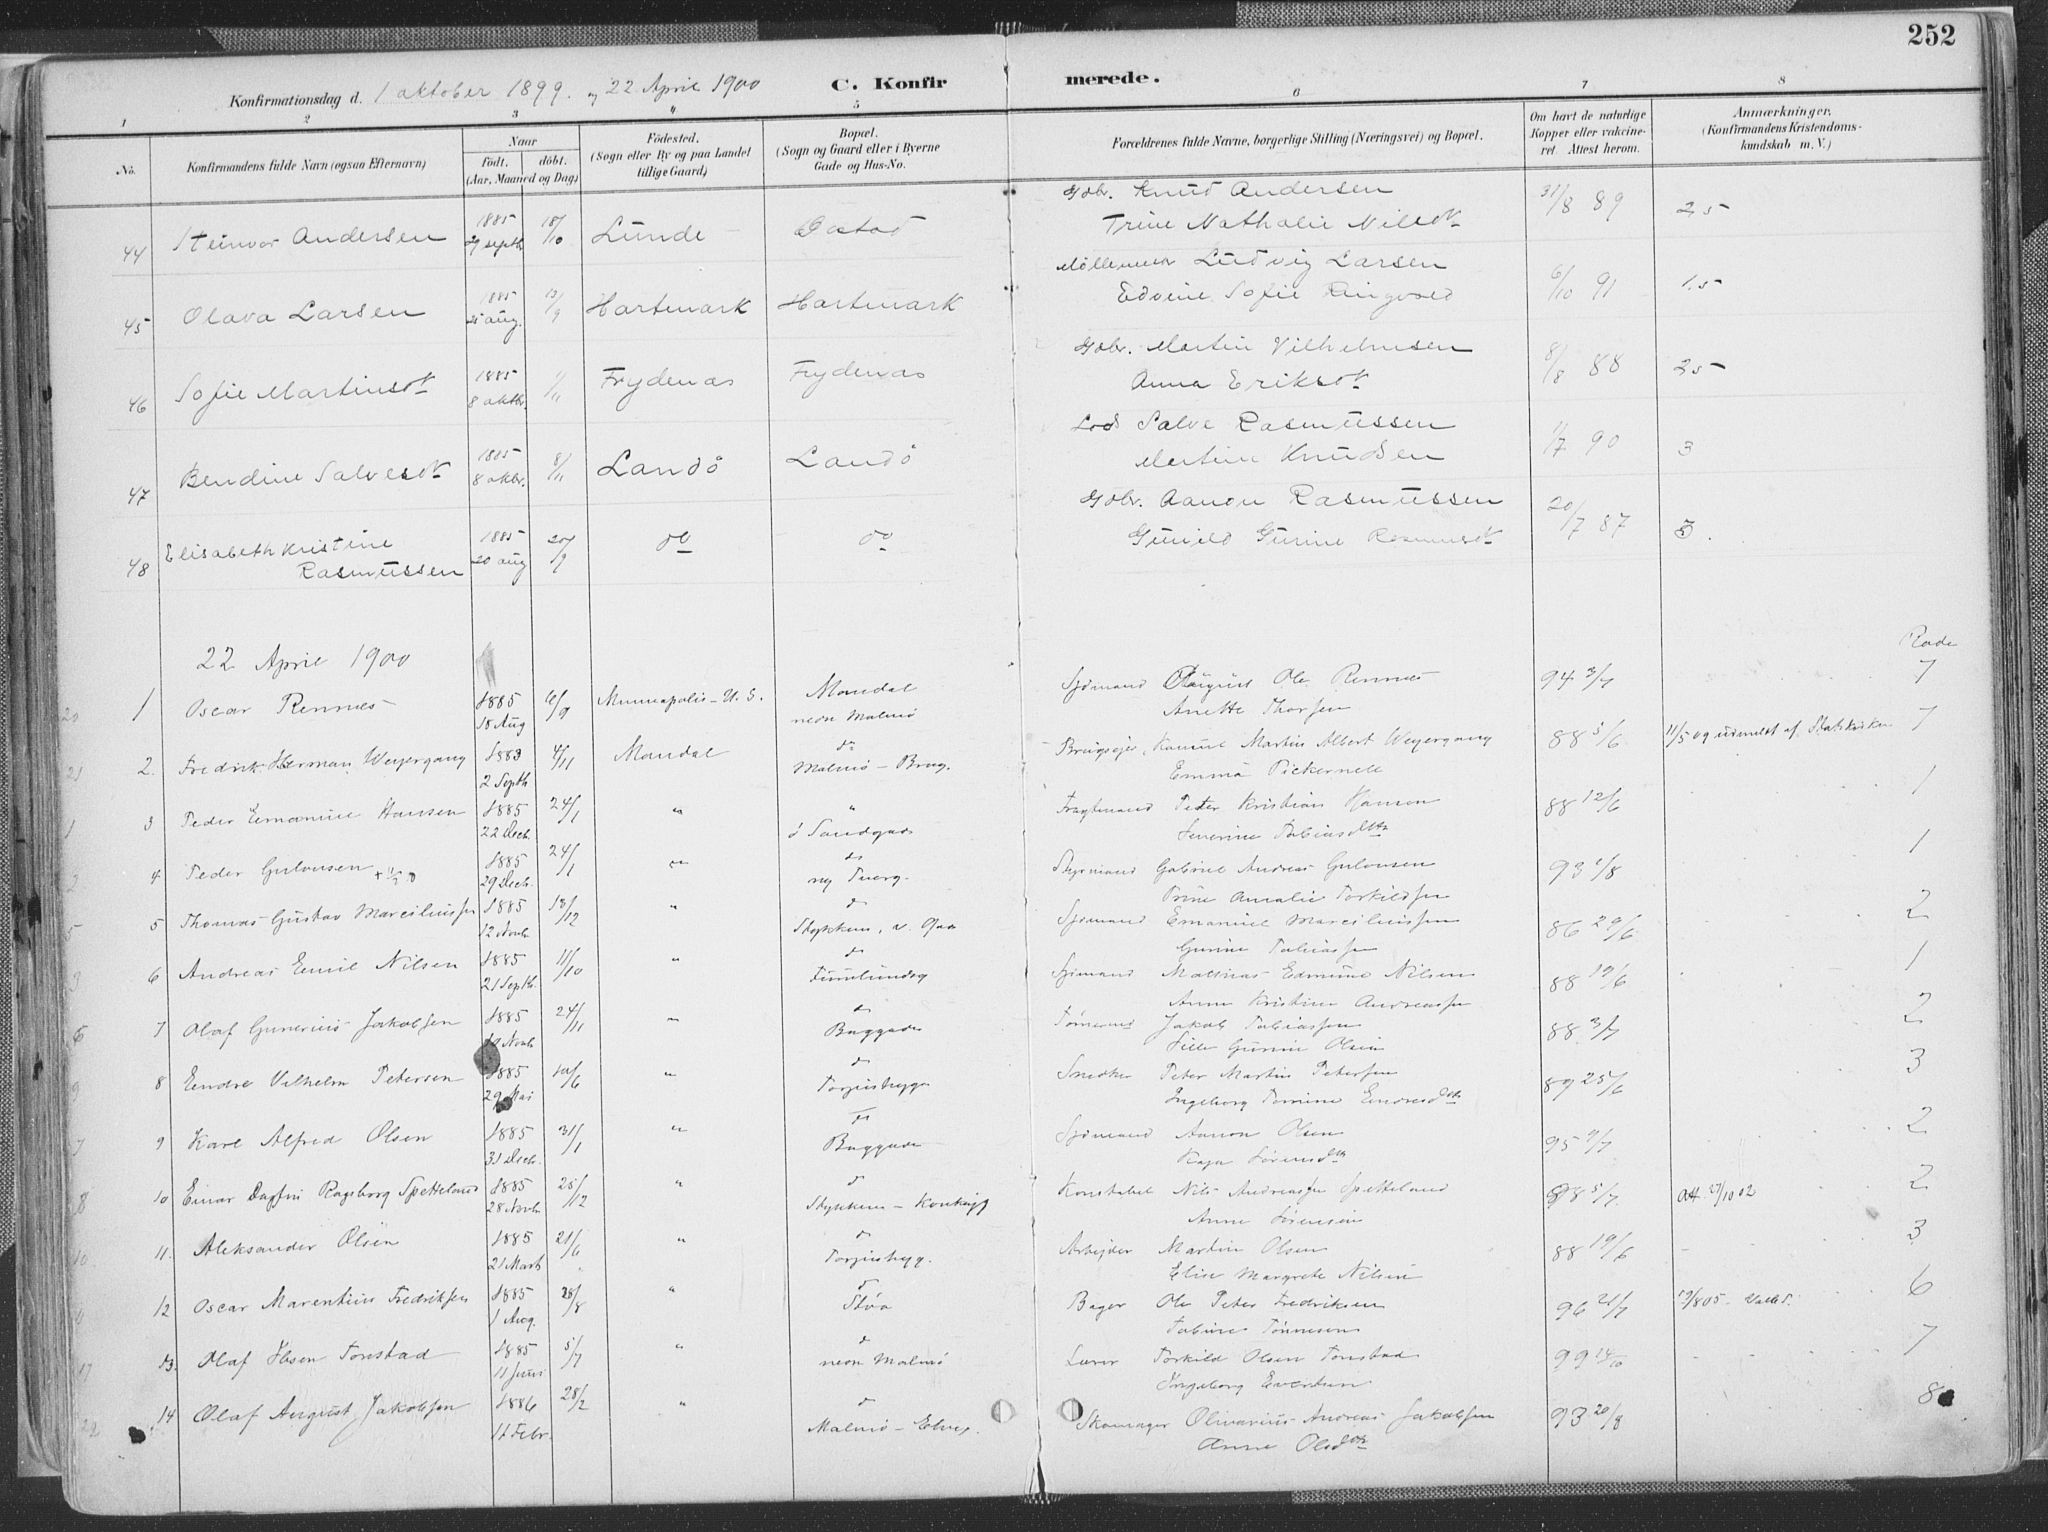 252
Konfirmationsdag d. 1 oktober 1899. og 22 April 1900 C. Konfirmerede.
1 2 3 4 5 6 7 8
No.
Konfirmandens fulde Navn (ogsaa Efternavn)
Naar
födt. döbt.
(Aar, Maaned og Dag)
Födested.
(Sogn eller By og paa Landet
tillige Gaard)
Bopæl.
(Sogn og Gaard eller i Byerne
Gade og Hus-No.
Forældrenes fulde Navne, borgerlige Stilling (Næringsvei) og Bopæl.
Om havt de naturlige
Kopper eller vakcine-
ret. Attest herom.
Anmærkninger.
(Konfirmandens Kristendoms-
kundskab m. V.)
44 Steinvor Andersen 1885 29 septb. 18/10 Lunde Gbr. Knud Andersen 31/8 89 2,5
Trine Nathalie Nilsdt.
45 Olava Larsen 1885 aug. 13/9 Hartmark Hartmark Ludvig Larsen 6/10 91 1.5
Edvine Sofie Ringvold
46 Sofie Martinsdt. 1885 8 oktbr. 1/11 Frydenæs Frydenæs Gbr. Martin Vilhelmsen 8/8 88 2,5
Anna Eriksdt.
47 Bendine Salvesdt. 1885 8 oktbr. 8/11 Landö Landö Lods Salve Rasmussen 1/7 90 3
Martine Knudsen
48 Elisabeth Kristine 1885 20 aug 20/9 do do Gbr. Aanon Rasmussen 20/7 87 3.
Rasmussen Gunild Gurine Rasmusdt.
22 April 1900
Rode
20 1 Oscar Rennes 1885 18 Aug 6/9 Minneapolis - U. S. Mandal Sjömand August Ole Rennes 94 3/7 7
neon Malmö Anette Thorsen
21 2. Fredrik Herman Weyergang 1885 2 Septb 4/11 Mandal do Brugseier Kamil Martin Albert Weyergang 88 5/6 11/5 09 udmeldt af Statskirken 7
Malmö - Brug. Emma Pickernell
1 3 Peder Emanuel Hansen 1885 22 Decb. 24/1 " " Fragtmand Peter Kristian Hansen 88 12/6 1
Severine Tobiasdtr
2 4 Peder Gulovsen 1885 29 Decb. 24/1 " do Styrmand Gabriel Andreas Gulovsen 93 1/8 1
Trine Amalie Torkildsen
5 5 Thomas Gustav Marciliussen 1885 12 Novb. 13/12 " do Sjömand Emanuel Marciliussen 86 29/6 2
Gurine Tobiassen
3 6 Andreas Emil Nilsen 1885 21 Septb. 11/10 " do Sjömand Mathias Edmund Nilsen 88 19/6 1
Anne Kristine Andreassen
6 7 Olaf Gunerius Jakobsen 1885 Novb 24/11 " do Tömmermd Jakob Tobiassen 88 3/7 2
Buggade Sille Gurine Olsen
9 8 Endre Vilhelm Petersen 1885 29 Mai 10/6 " do Snedker Peter Martin Petersen 89 25/6 3
Torjusbygg. Ingeborg Tomine Endresdtr
7 9 Karl Alfred Olsen 1885 31 Decb. 31/1 " do Sjömand Aanon Olsen 95 9/7 2
Buggade Kaja Sörensdtr
8 10 Einar Dagfin Ragsborg Spetteland 1885 28 Novb. 25/12 " do Konstabel Nils Andreassen Spetteland 98 5/7. Att 27/10 02 2
Anne Sörensen
10 11. Aleksander Olsen 1885 21 Marts 21/6 " do Arbejder Martin Olsen 88 19/6 3
Torjusbygg. Elise Margrete Nilsen
12 Oscar Marentius Fredriksen 1885 1 Aug. 28/8 " do Bager Ole Peter Fredriksen 96 21/7 19/8 05 6
Stöa Tobine Tönnesen
17 13. Olaf Olsen Tonstad 1885 11 Juni 5/7 " do Lærer Torkild Olsen Tonstad 99 14/10 7
neon Malmö Ingeborg Evertsen
22 14 Olaf August Jakobsen 1886 11 Febr. 28/2 " do Skomager Olivarius Andreas Jakobsen 93 20/8 8
Malmö - Anne Olsdtr